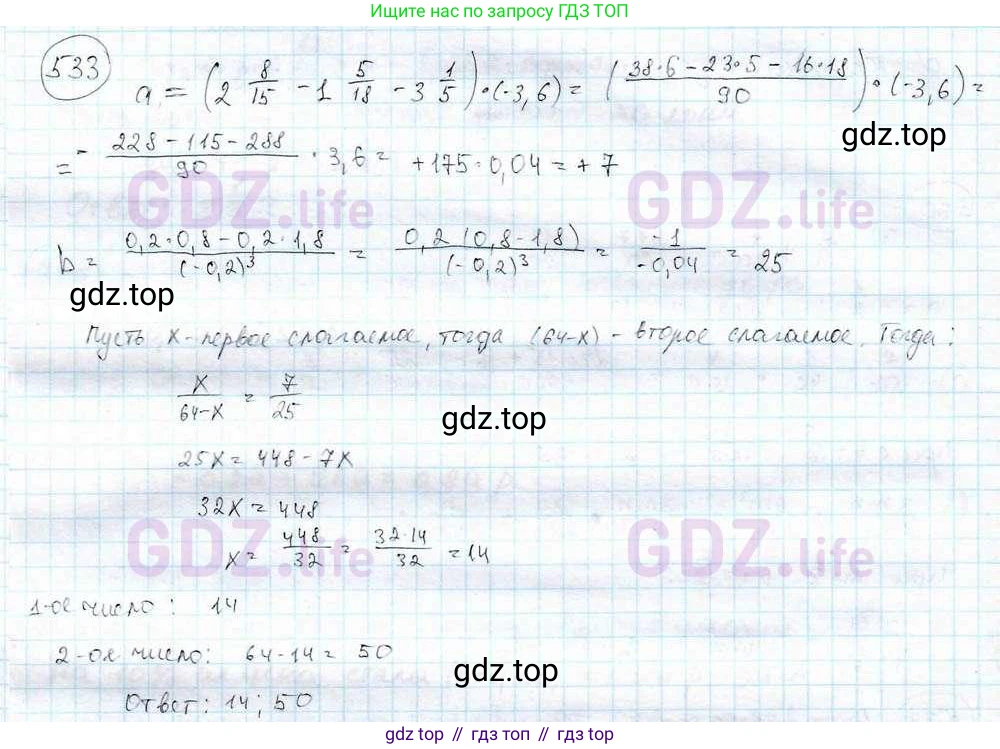 Ищите решение по запросу ГДЗ ТОП
533
a = (2 8/15 - 1 5/18 - 3 1/5) · (-3,6) = ((38·6 - 23·5 - 16·18)/90) · (-3,6) =
gdz.top
= - (228 - 115 - 288)/90 · 3,6 = +175·0,04 = +7
GDZ.life GDZ.life
b = (0,2·0,8 - 0,2·1,8)/(-0,2)³ = (0,2 (0,8 - 1,8))/(-0,2)³ = -1/-0,04 = 25
gdz.top
Пусть x - первое слагаемое, тогда (64-x) - второе слагаемое. Тогда:
x/(64-x) = 7/25
gdz.top
25x = 448 - 7x
32x = 448
x = 448/32 = 32·14/32 = 14
GDZ.life GDZ.life
1-ое число: 14
2-ое число: 64-14 = 50
gdz.top
Ответ: 14; 50
gdz.life // gdz.top // гдз.топ